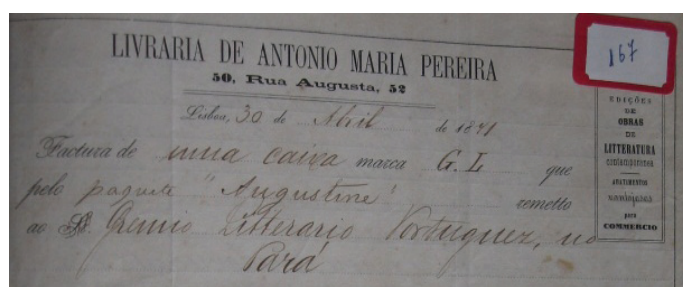 LIVRARIA DE ANTONIO MARIA PEREIRA
50, Rua Augusta, 52
Lisboa, 30 de Abril de 1871
Factura de uma caixa marca G. L que
pelo paquete "Augustine" remetto
ao Sr. Gremio Litterario Portuguez, no
Pará
167
EDIÇÕES
DE
OBRAS
DE
LITTERATURA
contemporanea
ABATIMENTOS
vantajosos
para
COMMERCIO